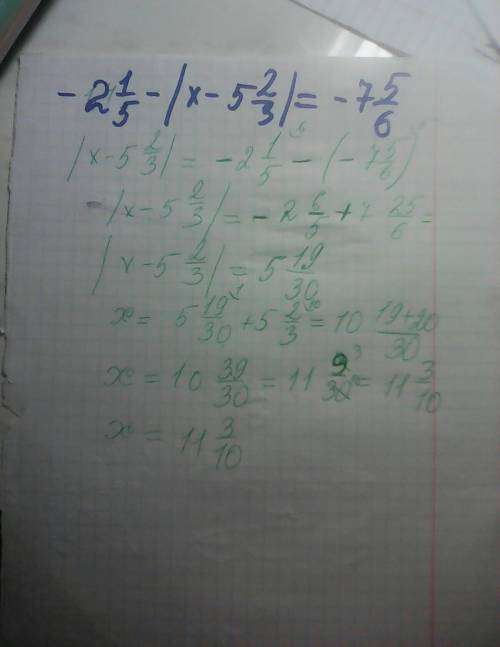 -2 1/5 - |x - 5 2/3| = -7 5/6
|x - 5 2/3| = -2 1/5 - (-7 5/6)
-|x - 5 2/3| = -2 6/5 + 7 25/6 =
|x - 5 2/3| = 5 19/30
x = 5 19/30 + 5 2/3 = 10 19+20/30
x = 10 39/30 = 11 9/30 = 11 3/10
x = 11 3/10